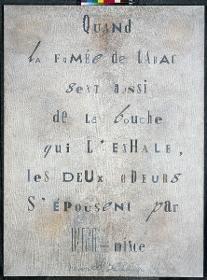 Quand
la FuMée de TABAC
sent aussi
de la bouche
qui L'EXHALE,
les DEUX ODEURS
S'ÉPOUSENT par
iNFRA-mince